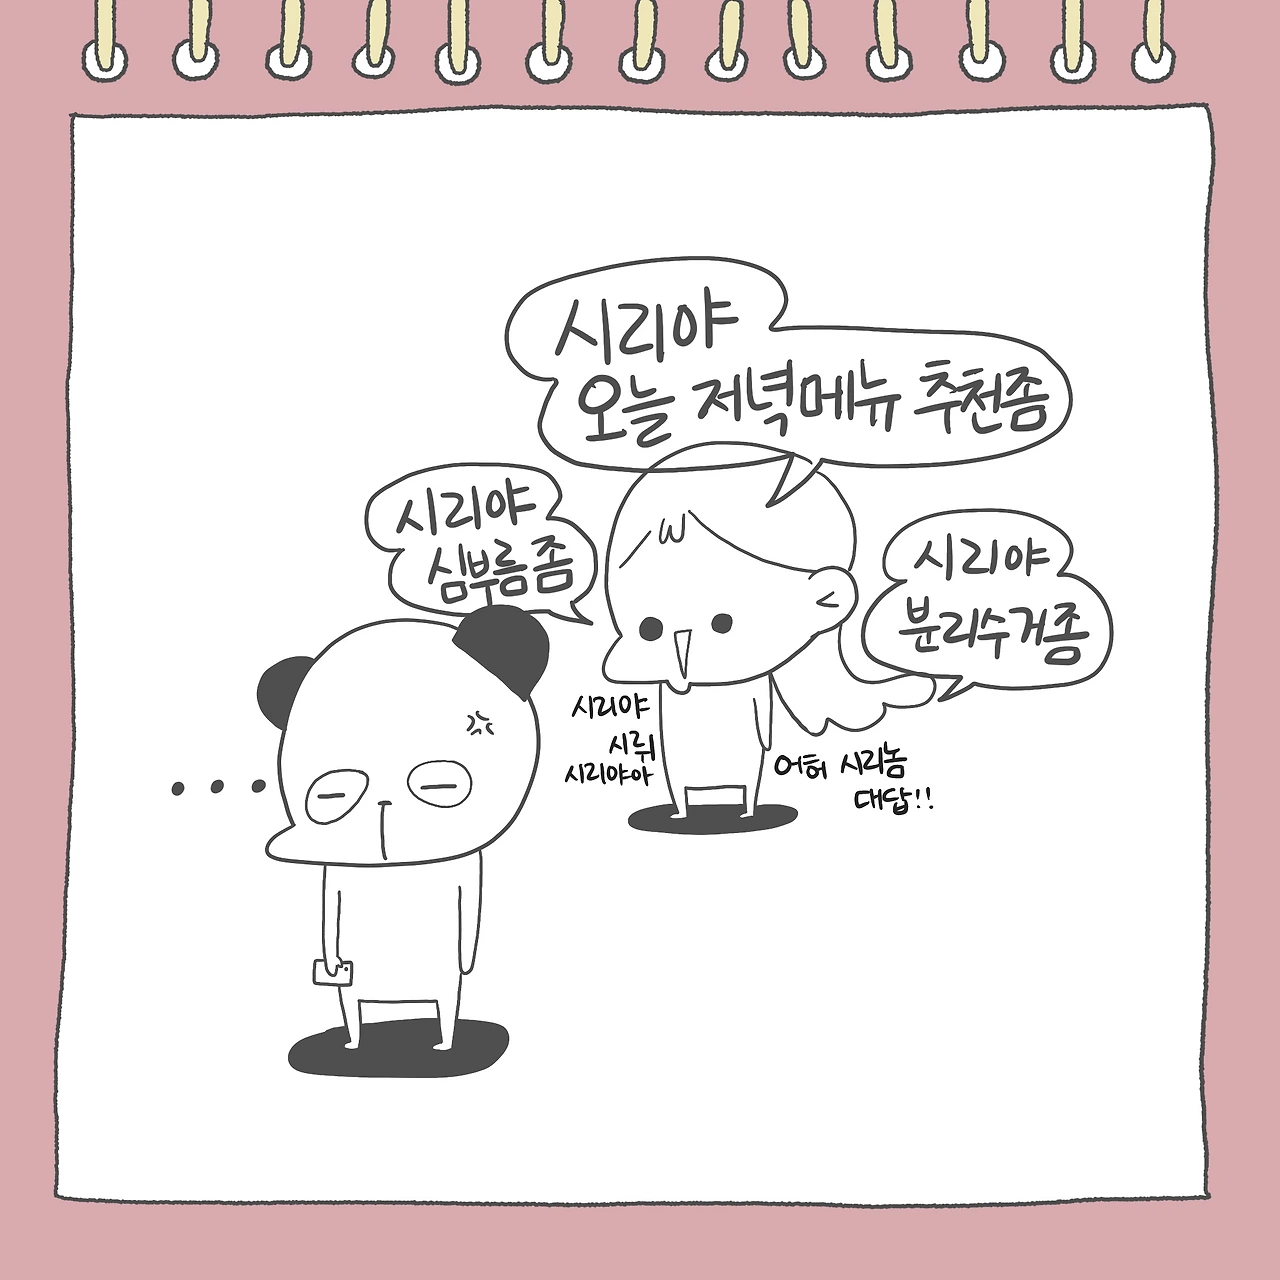 시리야
오늘 저녁메뉴 추천좀
시리야
심부름좀
시리야
분리수거좀
시리야
시뤼
시리야아
어허 시리놈
대답!!
...